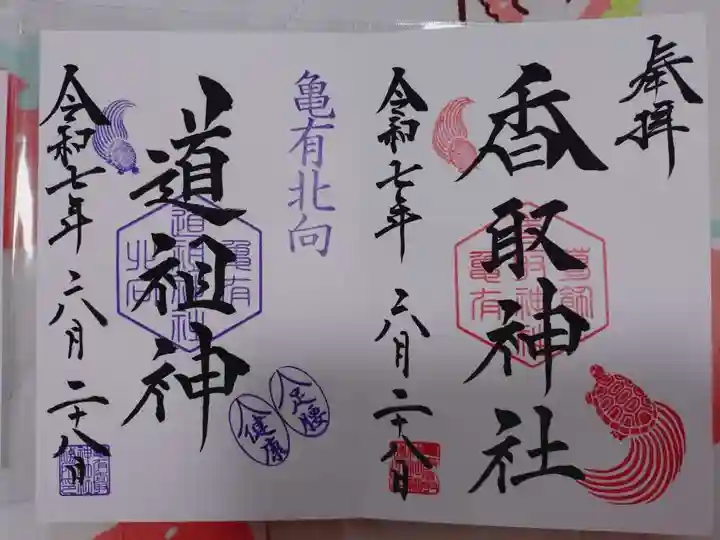 奉拝
香取神社
葛飾
香取神社
亀有
令和七年 六月二十八日
亀有北向
道祖神
亀有
道祖神社
北向
足腰
健康
令和七年 六月二十八日